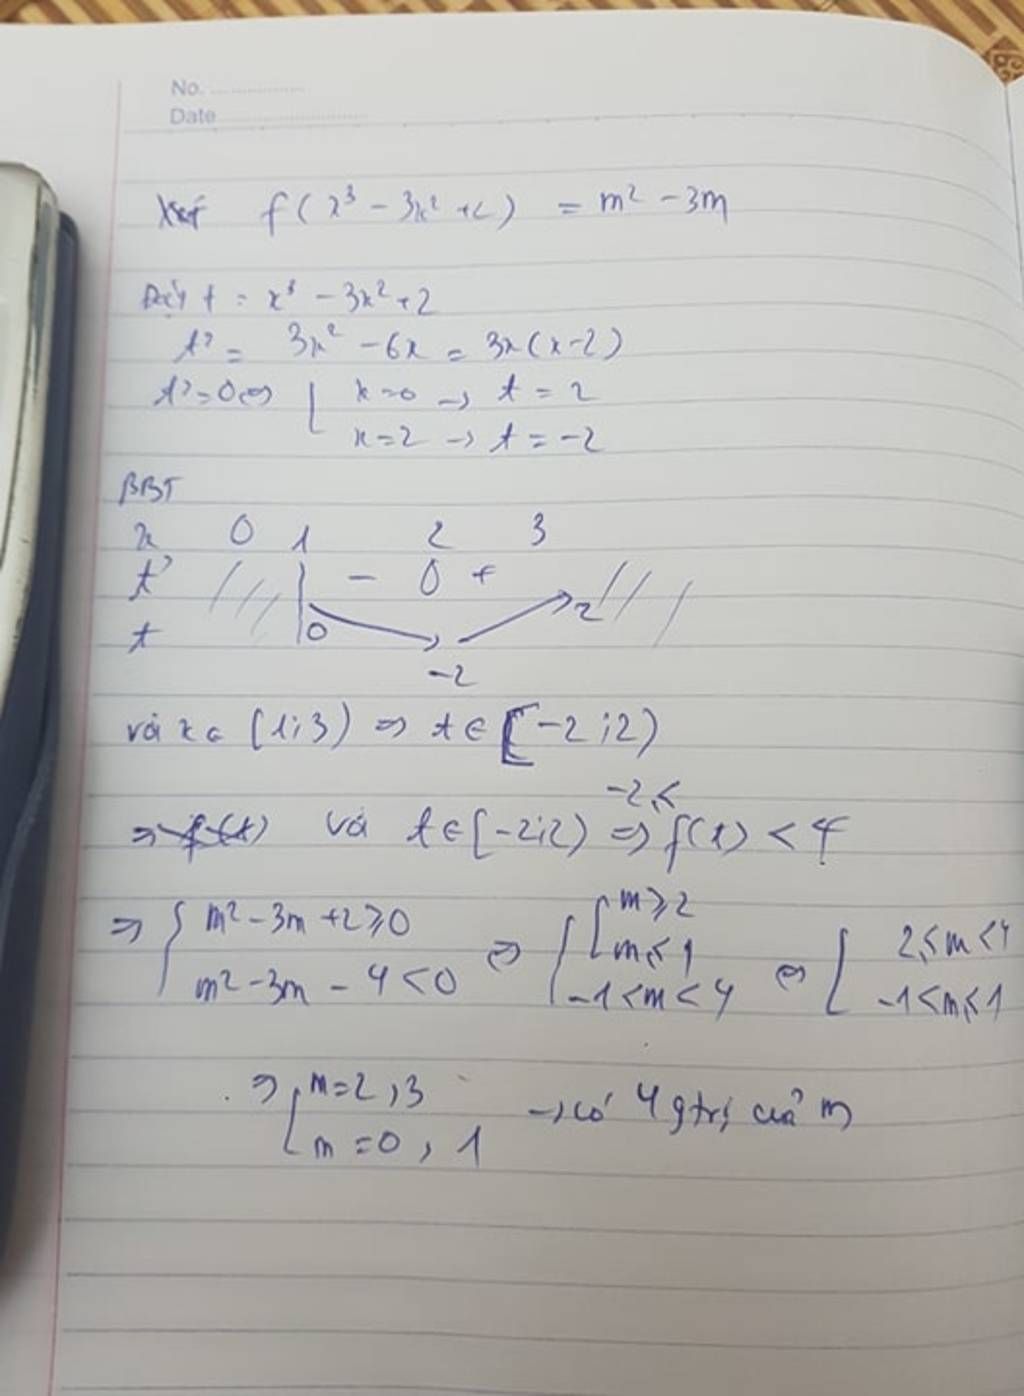 No.
Date
Xét f(x³ - 3x² + 2) = m² - 3m
Đặt t = x³ - 3x² + 2
t' = 3x² - 6x = 3x(x-2)
t' = 0 ⇔ [ x=0 → t = 2
x=2 → t = -2
BBT
x 0 1 2 3
t' - 0 +
t 0 -2 2
với x ∈ [1;3) ⇒ t ∈ [-2;2)
⇒ f(t) với t ∈ [-2;2) ⇒ -2 ≤ f(t) < 4
⇒ { m² - 3m + 2 ≥ 0 ⇔ { [ m ≥ 2 ⇔ [ 2 ≤ m < 4
m² - 3m - 4 < 0 m ≤ 1 -1 < m ≤ 1
-1 < m < 4
⇒ [ m = 2, 3 → có 4 gtrị của m
m = 0, 1